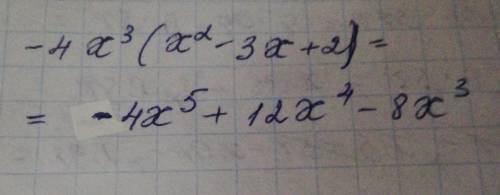 -4x³(x²-3x+2)=
= -4x⁵+12x⁴-8x³